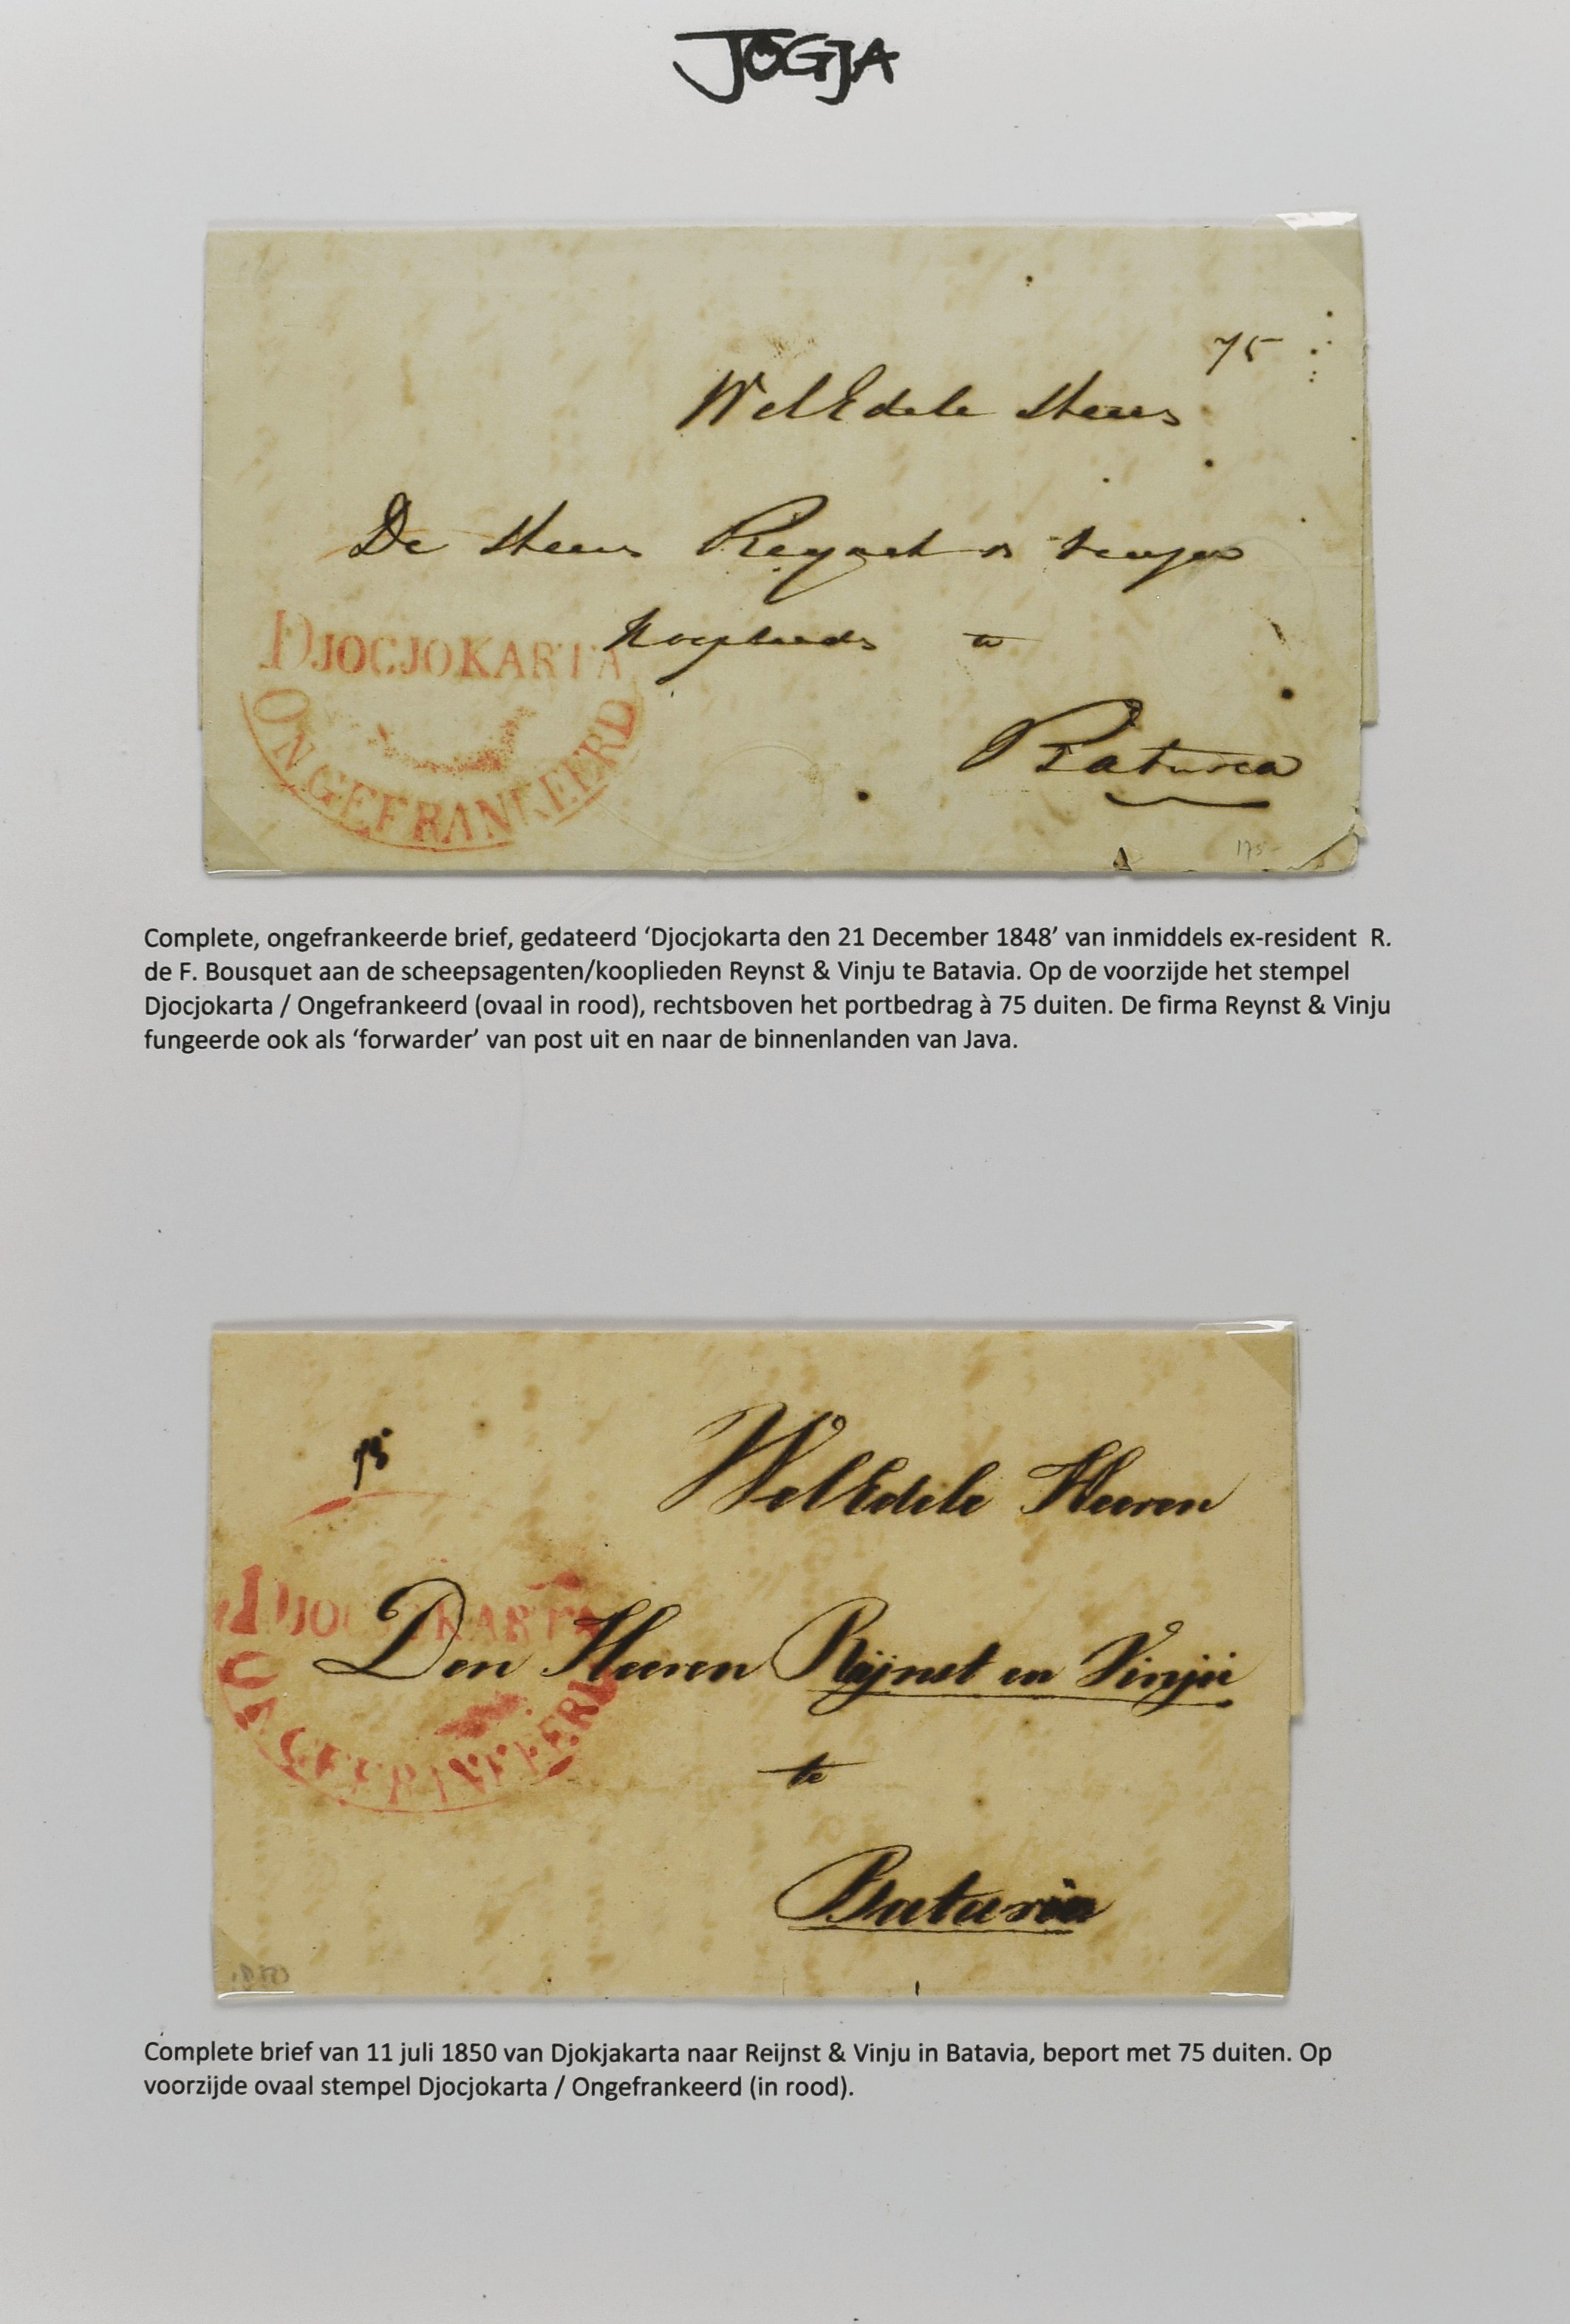 JOGJA
75
WelEdele Heeren
De Heeren Reynst en Vinju
Kooplieden te
DJOCJOKARTA
ONGEFRANKEERD
Batavia
175-
Complete, ongefrankeerde brief, gedateerd ‘Djocjokarta den 21 December 1848’ van inmiddels ex-resident R.
de F. Bousquet aan de scheepsagenten/kooplieden Reynst & Vinju te Batavia. Op de voorzijde het stempel
Djocjokarta / Ongefrankeerd (ovaal in rood), rechtsboven het portbedrag à 75 duiten. De firma Reynst & Vinju
fungeerde ook als ‘forwarder’ van post uit en naar de binnenlanden van Java.
75
WelEdele Heeren
DJOCJOKARTA
Den Heeren Reijnst en Vinju
ONGEFRANKEERD
te
Batavia
1850
Complete brief van 11 juli 1850 van Djokjakarta naar Reijnst & Vinju in Batavia, beport met 75 duiten. Op
voorzijde ovaal stempel Djocjokarta / Ongefrankeerd (in rood).